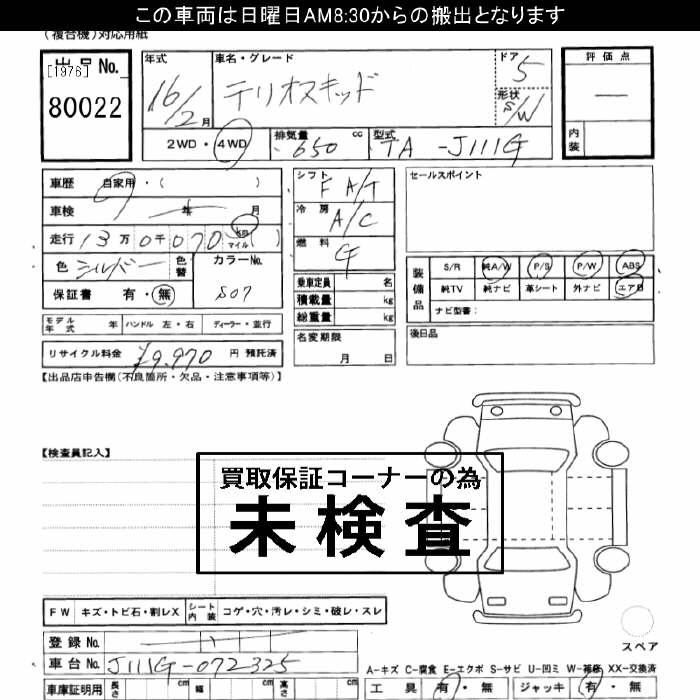 この車両は日曜日AM8:30からの搬出となります
(複合機)対応用紙
出品No.
[1976]
80022
年式
16/2月
車名・グレード
テリオスキッド
ドア
5
形状
S/W
評価点
内装
2WD・4WD
排気量
650 cc
型式
TA-J111G
車歴 自家用・( )
車検 年 月
走行 13万0千070 km マイル ( )
色 シルバー 色替
カラーNo.
S07
保証書 有・無
シフト
F A/T
冷房
A/C
燃料
G
乗車定員 名
積載量 kg
総重量 kg
セールスポイント
装備品
S/R 純A/W P/S P/W ABS
純TV 純ナビ 革シート 外ナビ エアB
ナビ型番:
モデル年式 年 ハンドル 左・右 ディーラー・並行
名変期限
月 日
後日品
リサイクル料金 ¥9,970 円 預託済
【出品店申告欄(不良箇所・欠品・注意事項等)】
【検査員記入】
買取保証コーナーの為
未検査
FW キズ・トビ石・割レX シート内装 コゲ・穴・汚レ・シミ・破レ・スレ
登録No.
車台No. J111G-072325
車庫証明用 長さ cm 幅 cm 高さ cm
スペア
A-キズ C-腐食 E-エクボ S-サビ U-凹ミ W-補修 XX-交換済
工具 有・無 ジャッキ 有・無